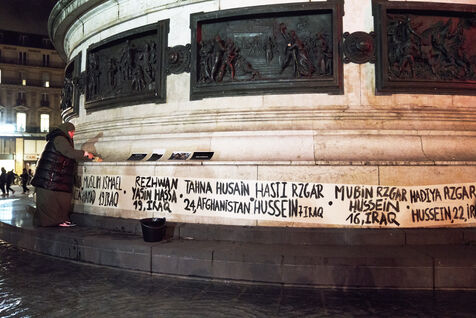 MUSLIM ISMAEL
19 IRAQ
REZHWAN
YASIN HASSA
19, IRAQ
TAHNA HUSAIN
24, AFGHANISTAN
HASTI RZGAR
HUSSEIN 7 IRAQ
MUBIN RZGAR
HUSSEIN
16, IRAQ
HADIYA RZGAR
HUSSEIN, 22, IR